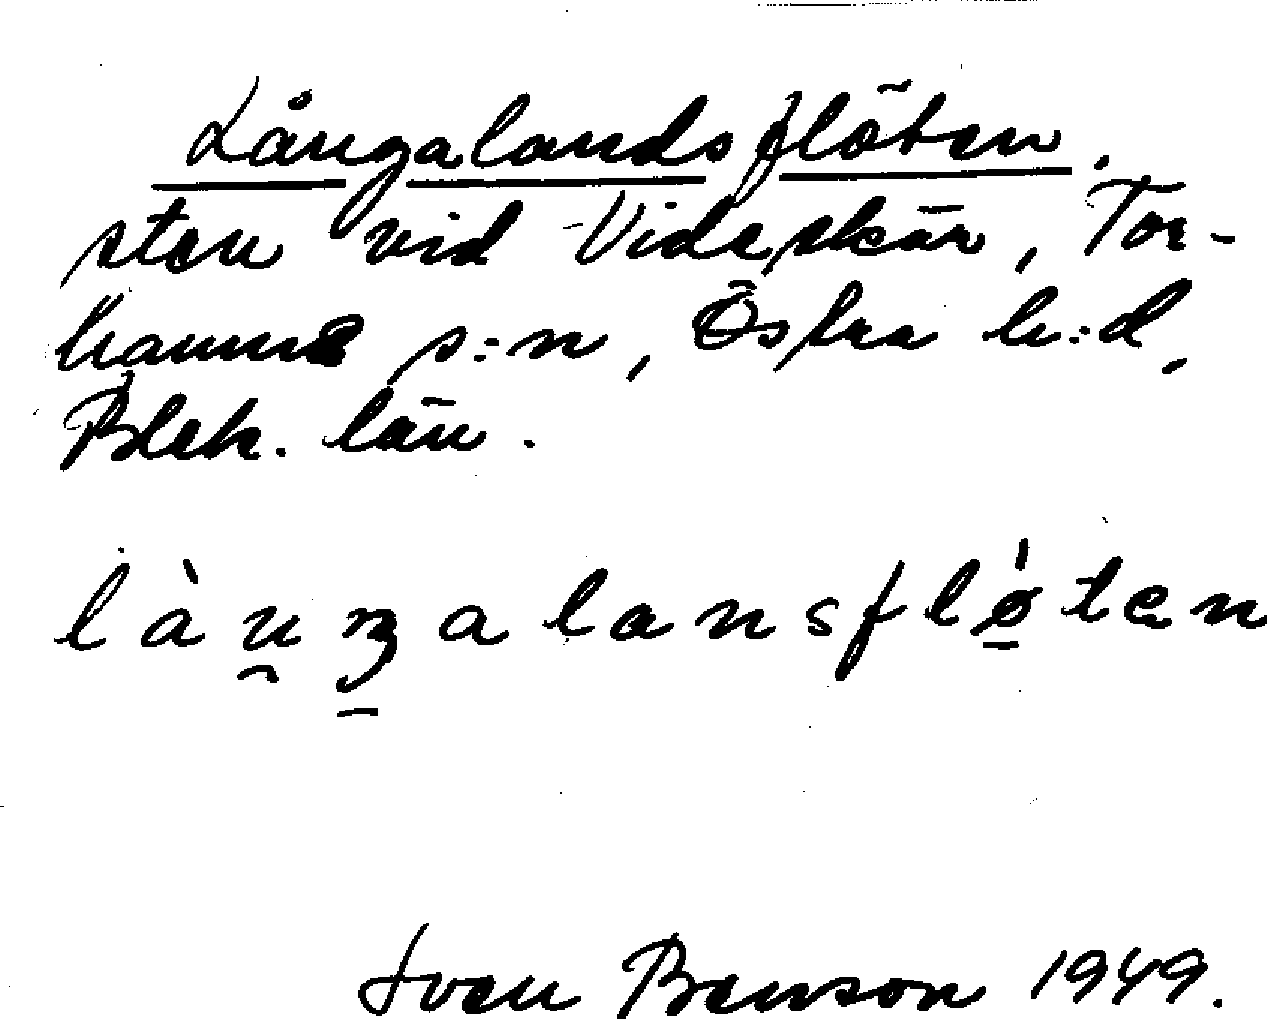 Långalandsflöten.
sten vid Videskär, Tor-
hamns s:n, Östra h:d,
Blek. län.
làṷʒ̱alansflǿ̱ten
Sven Benson 1949.